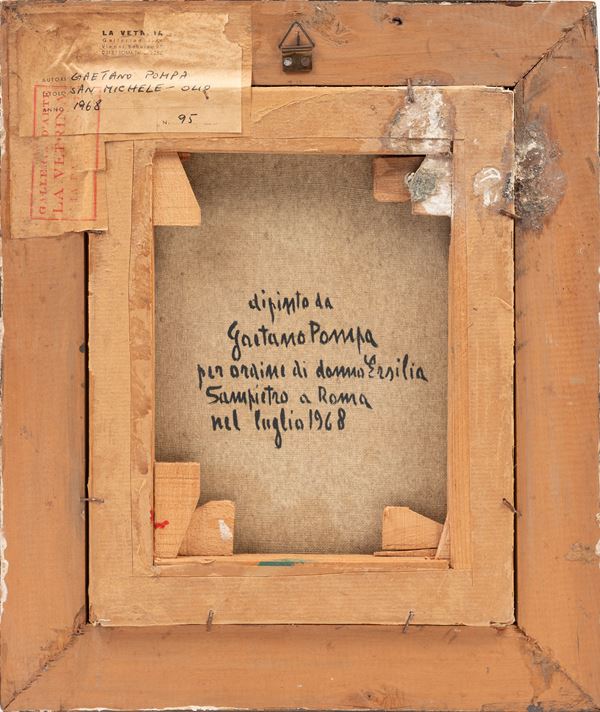 LA VETRINA
AUTORE GAETANO POMPA
TITOLO SAN MICHELE - OLIO
ANNO 1968
N. 95
GALLERIA D'ARTE
LA VETRINA
dipinto da
Gaetano Pompa
per ordine di donna Ersilia
Sampietro a Roma
nel luglio 1968